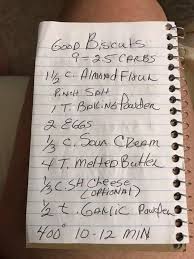 GOOD BISCUITS
9 = 2.5 CARBS
1 1/2 C. ALMOND FLOUR
PINCH SALT
1 T. BAKING POWDER
2 EGGS
1/2 C. SOUR CREAM
4 T. MELTED BUTTER
1/3 C. SH CHEESE
(OPTIONAL)
1/2 t. GARLIC POWDER
400° 10-12 MIN